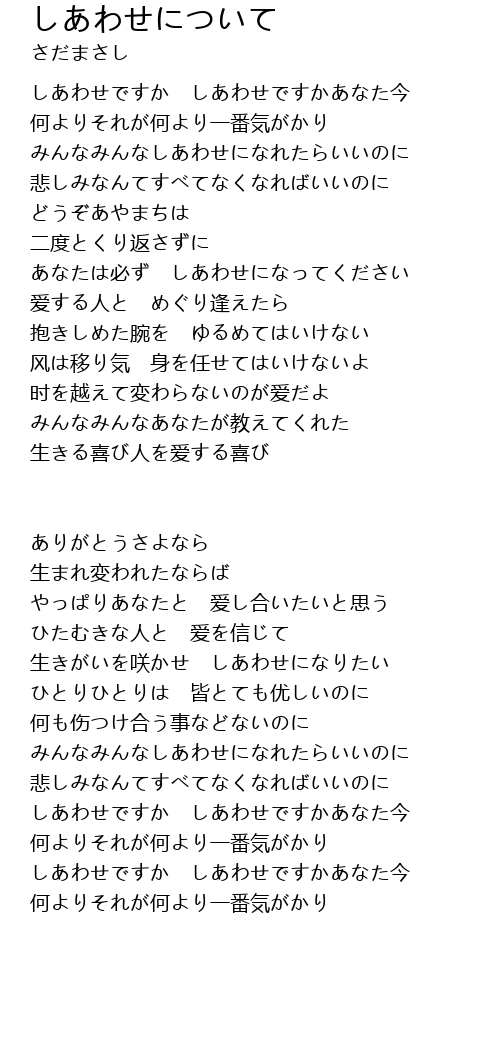 しあわせについて
さだまさし
しあわせですか　しあわせですかあなた今
何よりそれが何より一番気がかり
みんなみんなしあわせになれたらいいのに
悲しみなんてすべてなくなればいいのに
どうぞあやまちは
二度とくり返さずに
あなたは必ず　しあわせになってください
爱する人と　めぐり逢えたら
抱きしめた腕を　ゆるめてはいけない
风は移り気　身を任せてはいけないよ
时を越えて変わらないのが爱だよ
みんなみんなあなたが教えてくれた
生きる喜び人を爱する喜び
ありがとうさよなら
生まれ変われたならば
やっぱりあなたと　爱し合いたいと思う
ひたむきな人と　爱を信じて
生きがいを咲かせ　しあわせになりたい
ひとりひとりは　皆とても优しいのに
何も伤つけ合う事などないのに
みんなみんなしあわせになれたらいいのに
悲しみなんてすべてなくなればいいのに
しあわせですか　しあわせですかあなた今
何よりそれが何より一番気がかり
しあわせですか　しあわせですかあなた今
何よりそれが何より一番気がかり